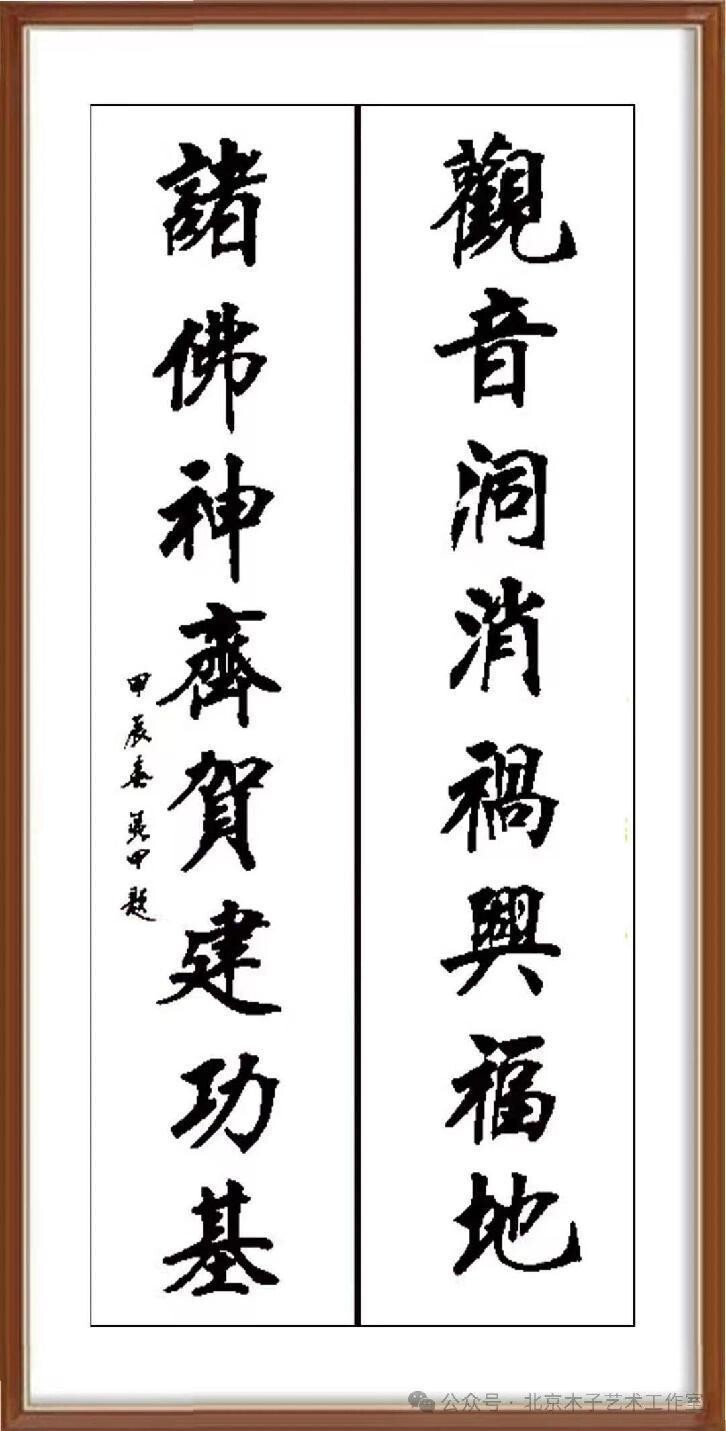 觀音洞消禍興福地
諸佛神齊賀建功基
甲辰春
甲題
公众号·北京木子艺术工作室